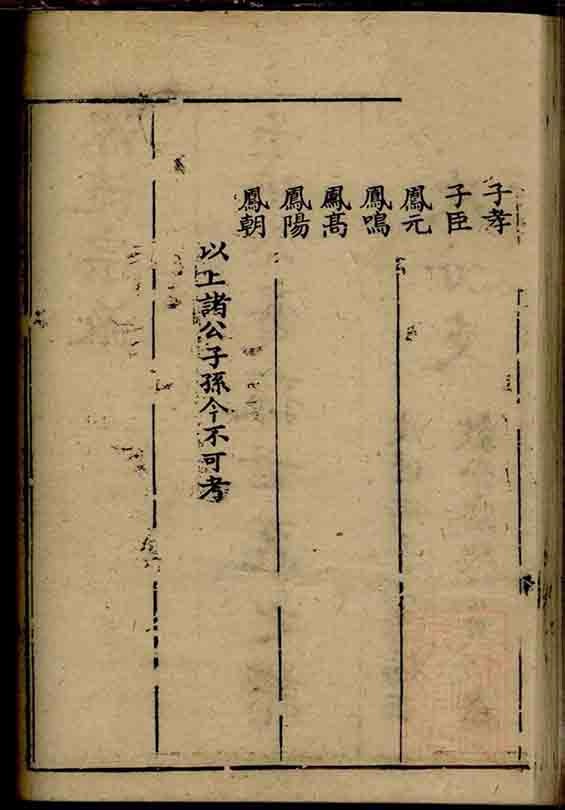 子孝
子臣
鳳元
鳳鳴
鳳高
鳳陽
鳳朝
以上諸公子孫今不可考